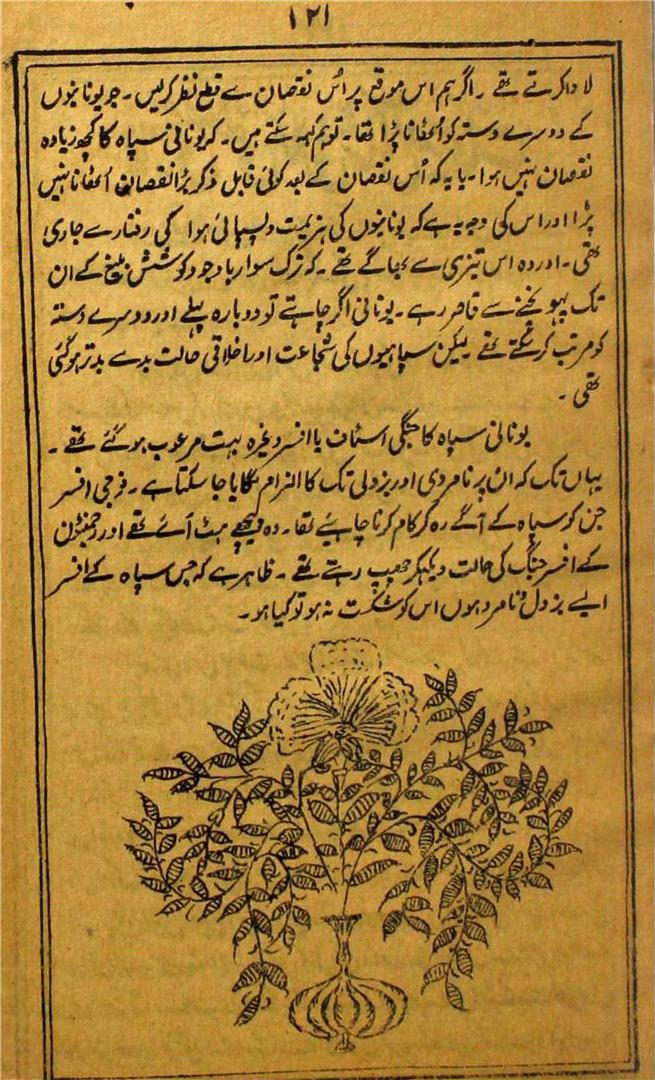 ۱۲۱
لا داکرتے تھے ۔ اگر ہم اس موقع پر اُس نقصان سے قطع نظر کرلیں ۔ جو یونانیوں
کے دوسرے دستہ کو اُٹھانا پڑا تھا ۔ تو ہم کہہ سکتے ہیں ۔ کہ یونانی سپاہ کا کچھ زیادہ
نقصان نہیں ہوا ۔ یا یہ کہ اُس نقصان کے بعد کوئی قابل ذکر بڑا نقصان اُٹھانا نہیں
پڑا اور اس کی وجہ یہ ہے کہ یونانیوں کی ہزیمت و پسپائی ہوا کی رفتار سے جاری
تھی ۔ اور وہ اس تیزی سے بھاگے تھے ۔ کہ ترک سوار باوجود کوشش بلیغ کے ان
تک پہونچنے سے قاصر رہے ۔ یونانی اگر چاہتے تو دوبارہ پہلے اور دوسرے دستہ
کو مرتب کر سکتے تھے لیکن سپاہیوں کی شجاعت اور اخلاقی حالت بد سے بدتر ہوگئی
تھی ۔
یونانی سپاہ کا جنگی اسٹاف یا افسر وغیرہ بہت مرعوب ہو گئے تھے ۔
یہاں تک کہ ان پر نامردی اور بزدلی تک کا الزام لگایا جا سکتا ہے ۔ فوجی افسر
جن کو سپاہ کے آگے رہ کر کام کرنا چاہئیے تھا ۔ وہ پیچھے ہٹ آئے تھے اور رجمنٹوں
کے افسر جنگ کی حالت دیکھکر چھپ رہتے تھے ۔ ظاہر ہے کہ جس سپاہ کے افسر
ایسے بزدل و نامرد ہوں اس کو شکست نہ ہو تو کیا ہو ۔